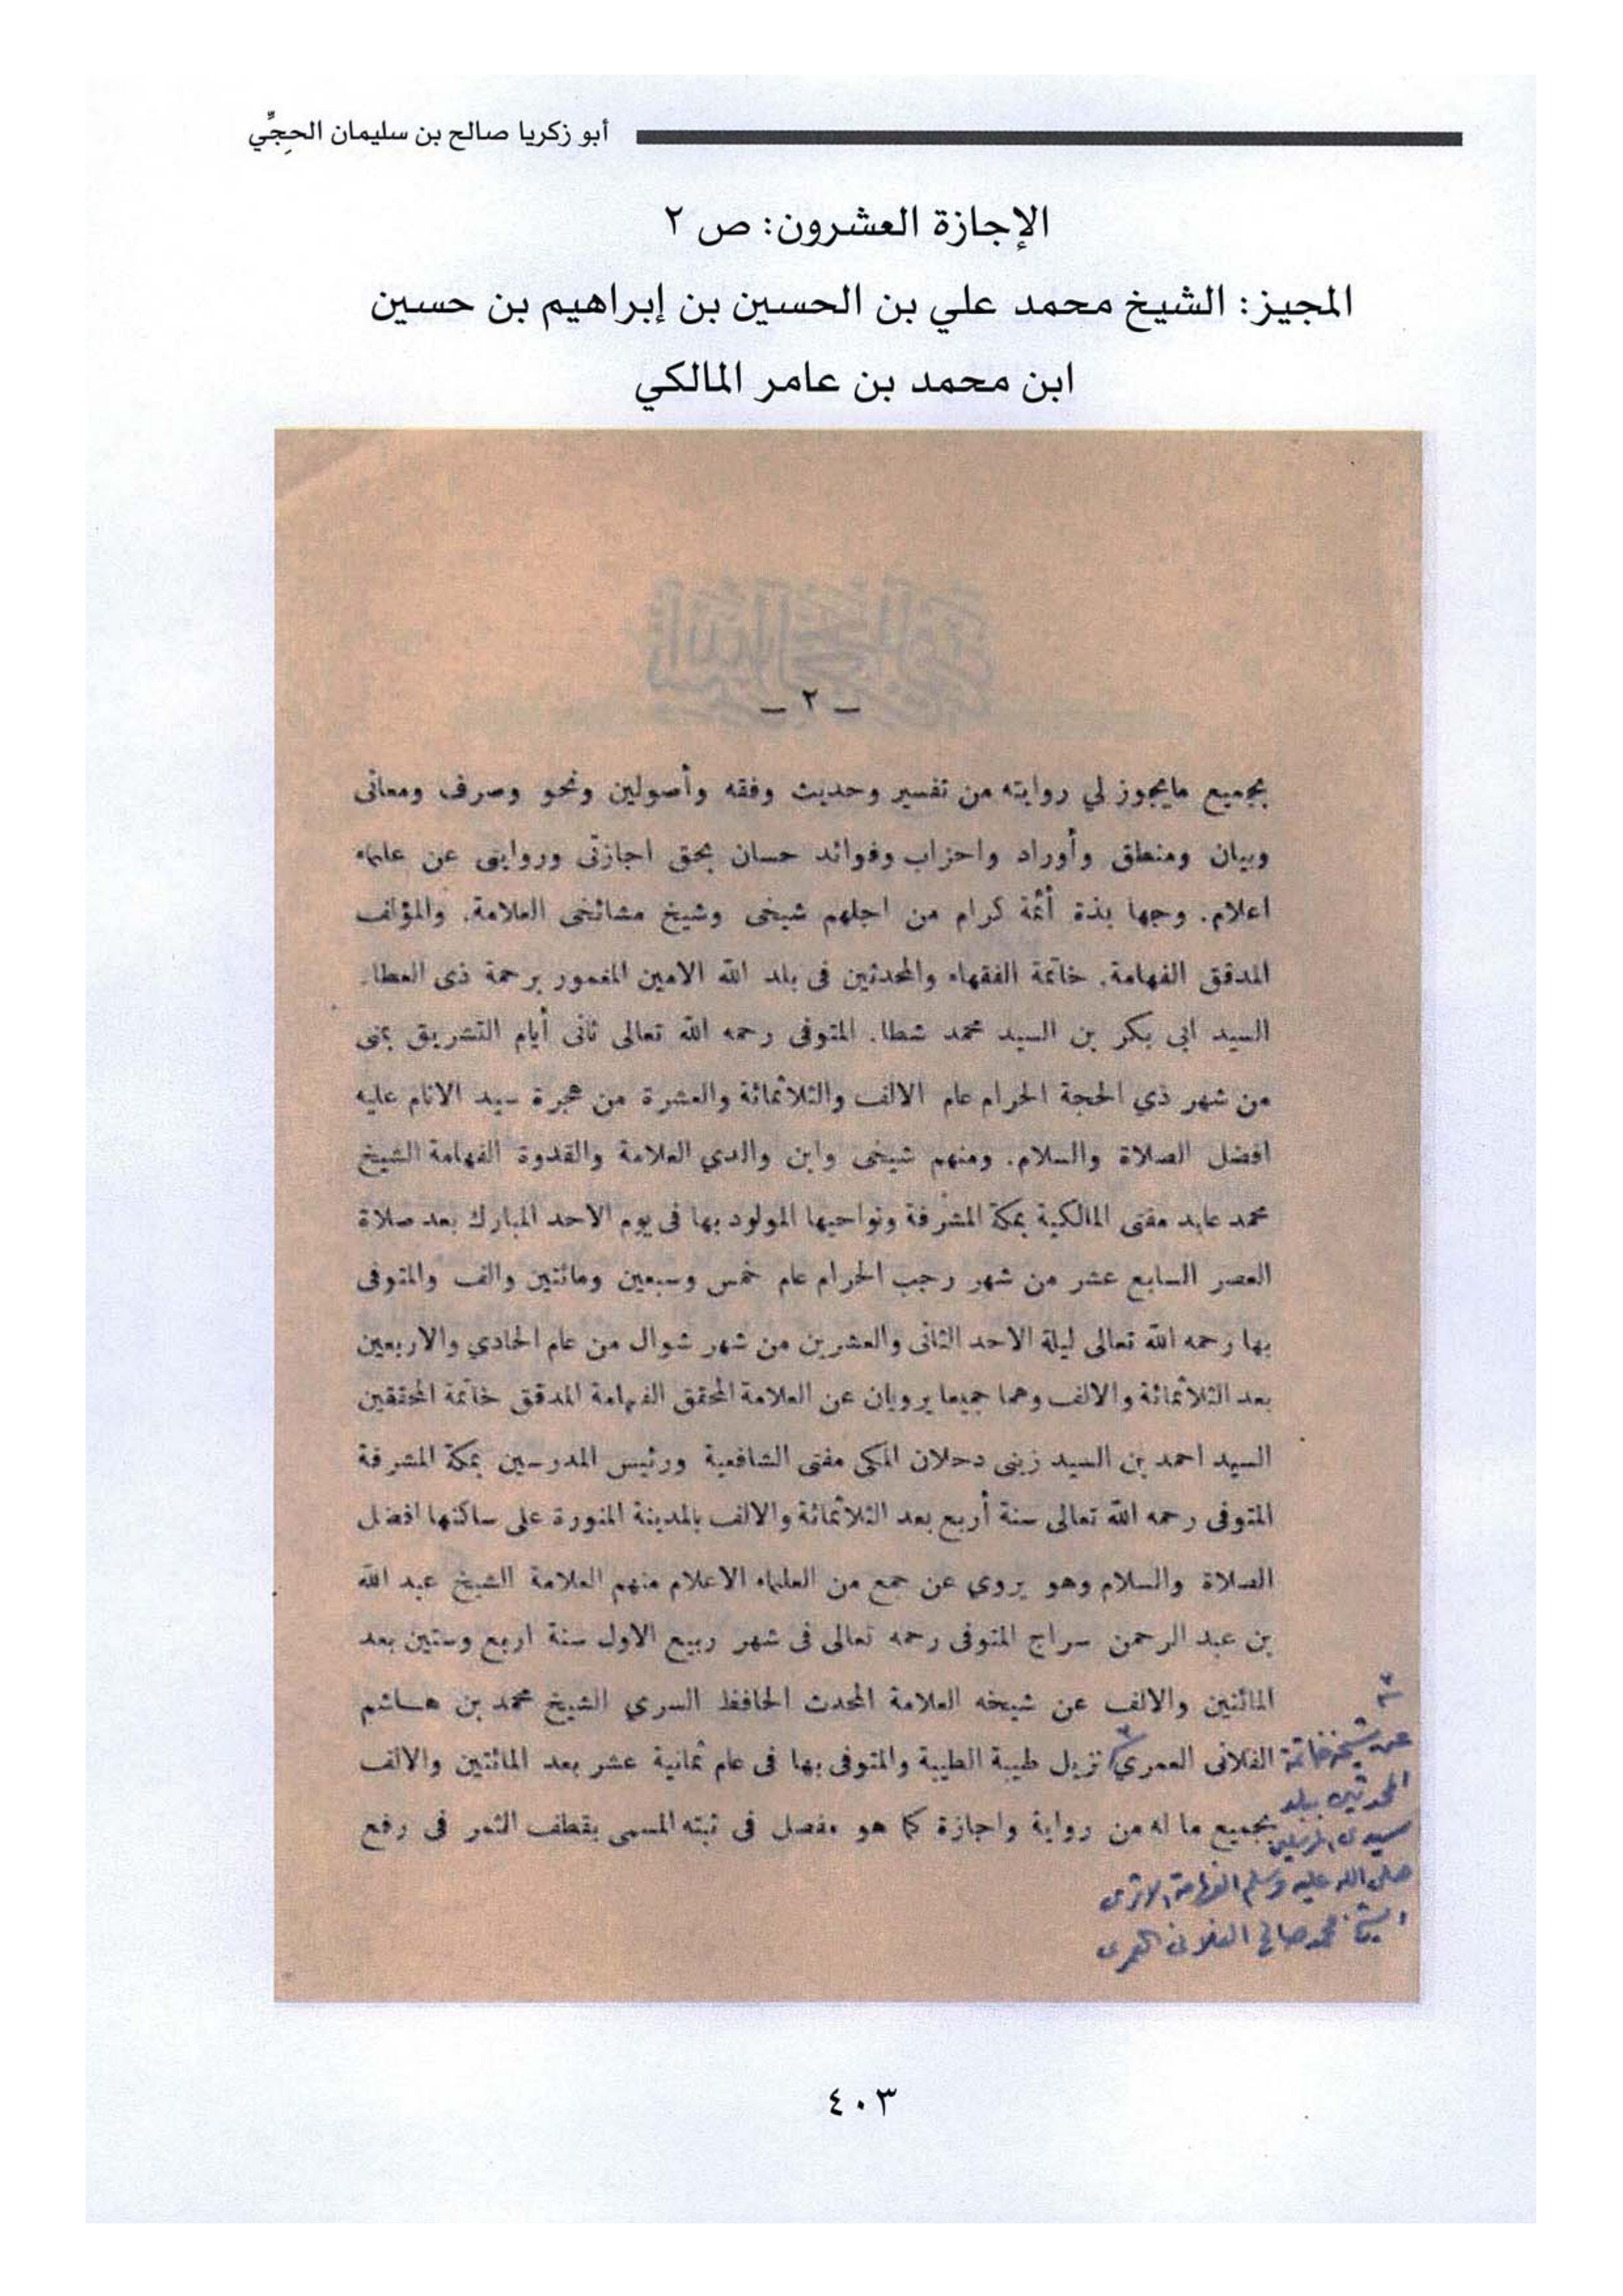 أبو زكريا صالح بن سليمان الحجِّي
الإجازة العشرون: ص ٢
المجيز: الشيخ محمد علي بن الحسين بن إبراهيم بن حسين
ابن محمد بن عامر المالكي
ـ ٢ ـ
بجميع مايجوز لي روايته من تفسير وحديث وفقه وأصولين ونحو وصرف ومعانى
وبيان ومنطق وأوراد واحزاب وفوائد حسان بحق اجازتى وروايتى عن علماء
اعلام. وجهابذة أئمة كرام من اجلهم شيخى وشيخ مشائخى العلامة. والمؤلف
المدقق الفهامة. خاتمة الفقهاء والمحدثين فى بلد الله الامين المغمور برحمة ذى العطا.
السيد ابى بكر بن السيد محمد شطا. المتوفى رحمه الله تعالى ثانى أيام التشريق بمنى
من شهر ذي الحجة الحرام عام الالف والثلاثمائة والعشرة من هجرة سيد الانام عليه
افضل الصلاة والسلام. ومنهم شيخى وابن والدي العلامة والقدوة الفهامة الشيخ
محمد عابد مفتى المالكية بمكة المشرفة ونواحيها المولود بها فى يوم الاحد المبارك بعد صلاة
العصر السابع عشر من شهر رجب الحرام عام خمس وسبعين ومائتين والف والمتوفى
بها رحمه الله تعالى ليلة الاحد الثانى والعشرين من شهر شوال من عام الحادي والاربعين
بعد الثلاثمائة والالف وهما جميعا يرويان عن العلامة المحقق الفهامة المدقق خاتمة المحققين
السيد احمد بن السيد زينى دحلان المكى مفتى الشافعية ورئيس المدرسين بمكة المشرفة
المتوفى رحمه الله تعالى سنة أربع بعد الثلاثمائة والالف بالمدينة المنورة على ساكنها افضل
الصلاة والسلام وهو يروي عن جمع من العلماء الاعلام منهم العلامة الشيخ عبد الله
بن عبد الرحمن سراج المتوفى رحمه تعالى فى شهر ربيع الاول سنة اربع وستين بعد
المائتين والالف عن شيخه العلامة المحدث الحافظ السري الشيخ محمد بن هاشم
الفلانى العمري نزيل طيبة الطيبة والمتوفى بها فى عام ثمانية عشر بعد المائتين والالف
بجميع ما له من رواية واجازة كما هو مفصل فى ثبته المسمى بقطف الثمر فى رفع
عن شيخه خاتمة
المحدثين ببلد
سيد المرسلين
صلى الله عليه وسلم الفهامة
الشيخ محمد صالح الفلانى العمرى
٤٠٣